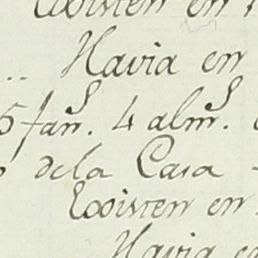 Existen en
Havia en
5 fans. 4 alms.
dela Casa
Existen en
Havia en